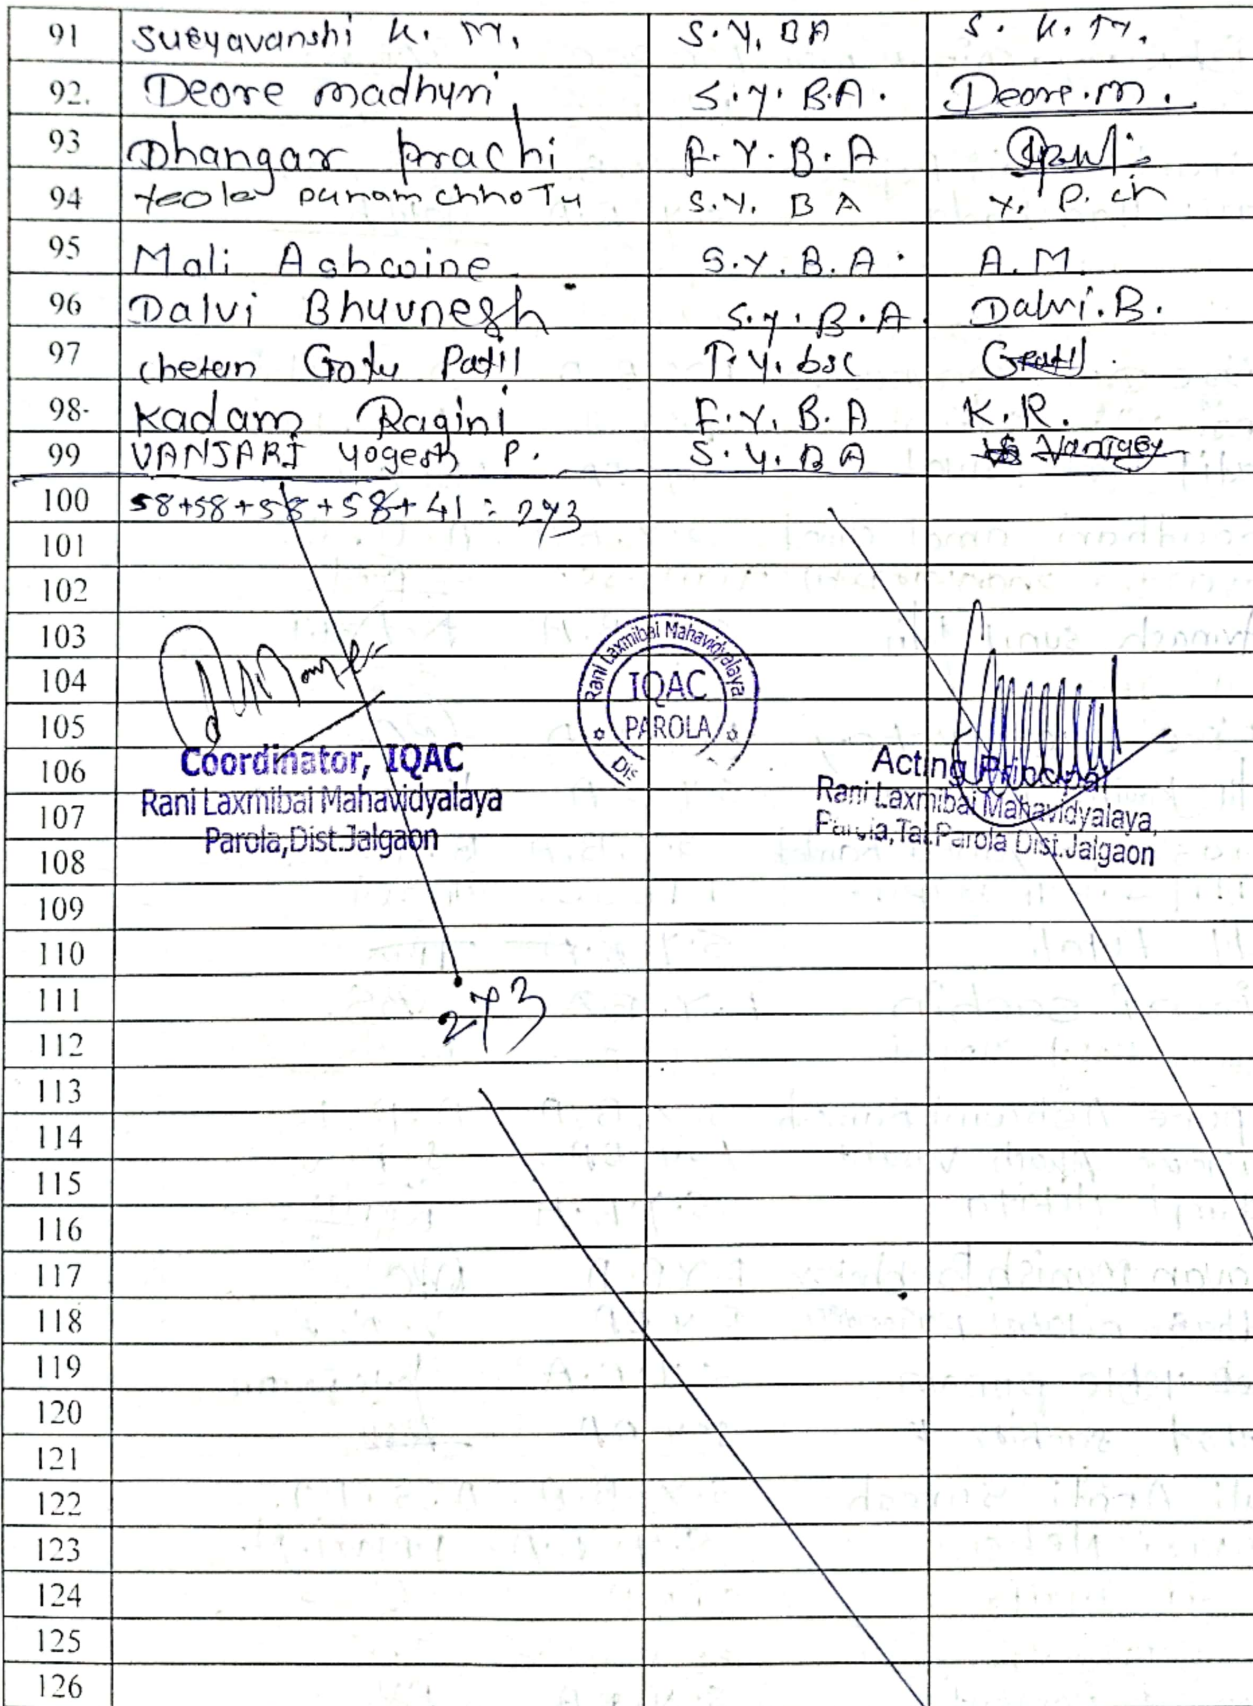 91 Sueyavanshi K. M. S.Y. BA S. K. M.
92. Deore madhuri S.Y. B.A. Deore.m.
93 Dhangar Prachi F.Y.B.A
94 Yeole punam chhoTu S.Y. B A Y. P. ch
95 Mali Ashwine S.Y.B.A. A.M.
96 Dalvi Bhuvnesh S.Y.B.A. Dalvi.B.
97 chetan Gotu Patil T.Y. bsc
98. Kadam Ragini F.Y. B. A K.R.
99 VANJARI Yogesh P. S.Y. BA
100 58+58+58+58+41 = 273
101
102
103
104
105
106
107
108
109
110
111
112
113
114
115
116
117
118
119
120
121
122
123
124
125
126
Coordinator, IQAC
Rani Laxmibai Mahavidyalaya
Parola,Dist.Jalgaon
Rani Laxmibai Mahavidyalaya
IQAC
PAROLA
Dis
Acting Principal
Rani Laxmibai Mahavidyalaya,
Parola,Tal.Parola Dist.Jalgaon
273